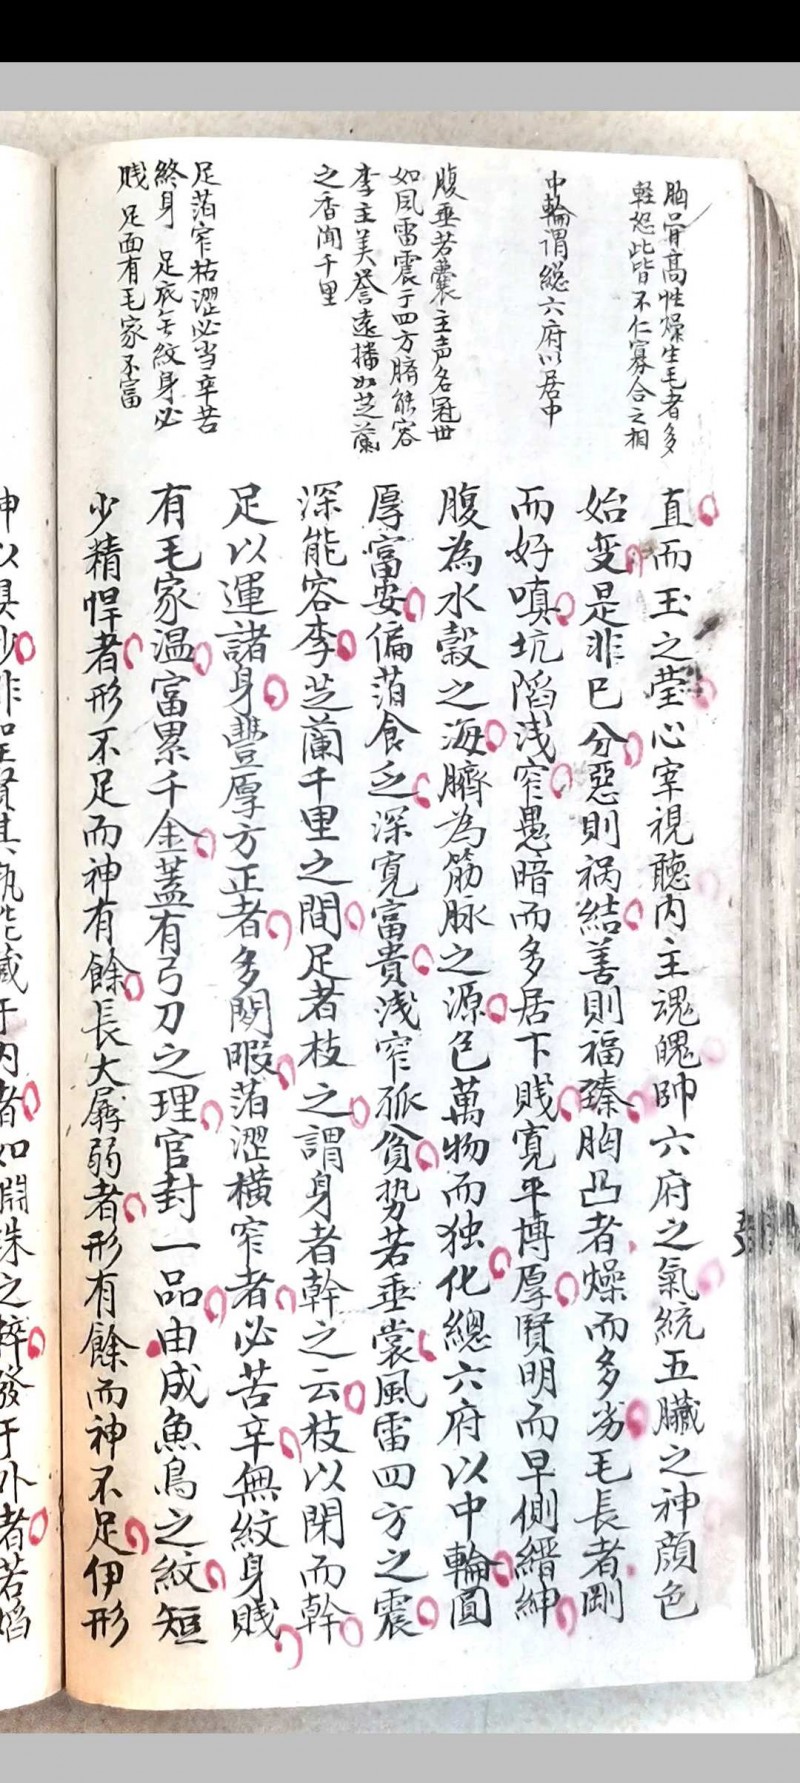 胸骨高性燥生毛者多
輕怒此皆不仁寡合之相
中輪謂總六府以居中
腹垂若囊主声名冠世
如風雷震于四方臍能容
李主美譽遠播如芝蘭
之香聞千里
足萡窄枯澀必当辛苦
終身 足底無紋身必
賎 足面有毛家不富
直而玉之瑩心宰視聽内主魂魄帥六府之氣統五臟之神顔色
始变是非巳分惡則祸結善則福臻胸凸者燥而多劣毛長者剛
而好嗔坑陷浅窄愚暗而多居下賎寛平博厚賢明而早側縉紳
腹為水穀之海臍為筋脉之源包萬物而独化總六府以中輪圓
厚富安偏萡食乏深寛富貴浅窄孤貧勢若垂裳風雷四方之震
深能容李芝蘭千里之間足者枝之謂身者幹之云枝以閑而幹
足以運諸身豐厚方正者多閑暇萡澀橫窄者必苦辛無紋身賎
有毛家温富累千金蓋有弓刀之理官封一品由成魚鳥之紋短
少精悍者形不足而神有餘長大孱弱者形有餘而神不足伊形